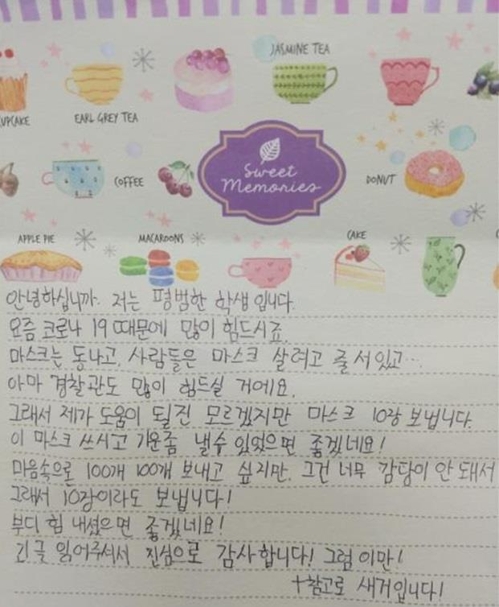 JASMINE TEA
CUPCAKE
EARL GREY TEA
COFFEE
Sweet
Memories
DONUT
APPLE PIE
MACAROONS
CAKE
안녕하십니까. 저는 평범한 학생 입니다.
요즘 코로나 19 때문에 많이 힘드시죠.
마스크는 동나고, 사람들은 마스크 살려고 줄 서있고…
아마 경찰관도 많이 힘드실 거에요.
그래서 제가 도움이 될진 모르겠지만 마스크 10장 보냅니다.
이 마스크 쓰시고 기운좀 낼수 있었으면 좋겠네요!
마음속으로 100개 100개 보내고 싶지만, 그건 너무 감당이 안 돼서
그래서 10장이라도 보냅니다!
부디 힘 내셨으면 좋겠네요!
긴글 읽어주셔서 진심으로 감사합니다! 그럼 이만!
+참고로 새거입니다!